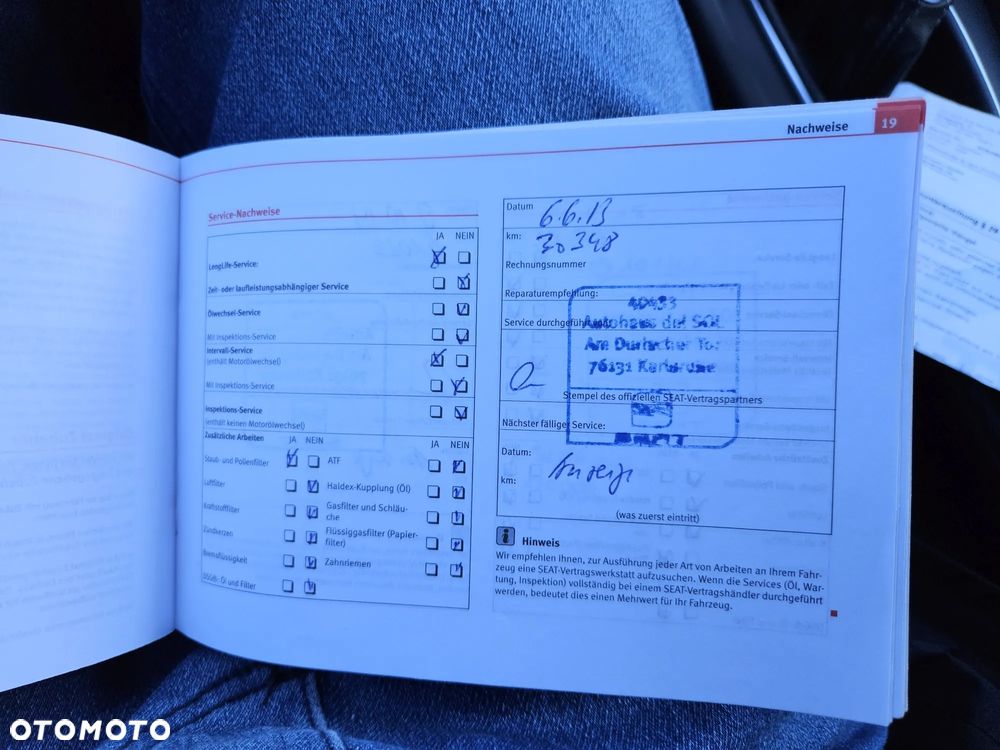 Nachweise 19
Service-Nachweise
JA NEIN
LongLife-Service:
Zeit- oder laufleistungsabhängiger Service
Ölwechsel-Service
Mit Inspektions-Service
Intervall-Service
(enthält Motorölwechsel)
Mit Inspektions-Service
Inspektions-Service
(enthält keinen Motorölwechsel)
Zusätzliche Arbeiten JA NEIN JA NEIN
Staub- und Pollenfilter ATF
Luftfilter Haldex-Kupplung (Öl)
Kraftstofffilter Gasfilter und Schläu-
che
Zündkerzen Flüssiggasfilter (Papier-
filter)
Bremsflüssigkeit Zahnriemen
Öl und Filter
Datum 6.6.13
km: 30348
Rechnungsnummer
Reparaturempfehlung:
Service durchgeführt
Autohaus del SOL
Am Durlacher Tor
76131 Karlsruhe
Stempel des offiziellen SEAT-Vertragspartners
Nächster fälliger Service:
Datum:
km: Anzeige
(was zuerst eintritt)
i Hinweis
Wir empfehlen Ihnen, zur Ausführung jeder Art von Arbeiten an Ihrem Fahr-
zeug eine SEAT-Vertragswerkstatt aufzusuchen. Wenn die Services (Öl, War-
tung, Inspektion) vollständig bei einem SEAT-Vertragshändler durchgeführt
werden, bedeutet dies einen Mehrwert für Ihr Fahrzeug.
OTOMOTO